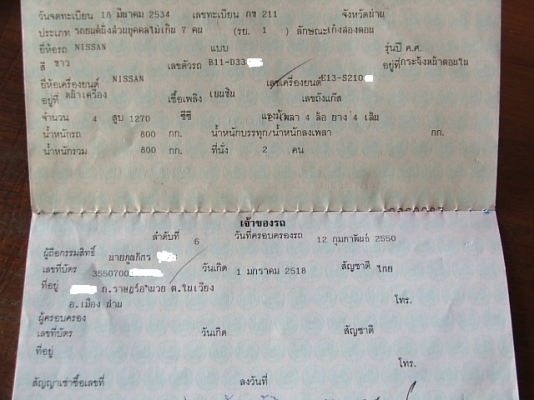 วันจดทะเบียน 18 มีนาคม 2534 เลขทะเบียน กข 211 จังหวัดน่าน
ประเภท รถยนต์นั่งส่วนบุคคลไม่เกิน 7 คน (รย. 1 ) ลักษณะเก๋งสองตอน
ยี่ห้อรถ NISSAN แบบ รุ่นปี ค.ศ.
สี ขาว เลขตัวรถ B11-D33 อยู่ที่กระจังหน้าตอนใน
ยี่ห้อเครื่องยนต์ NISSAN เลขเครื่องยนต์ E13-S210
อยู่ที่ หน้าเครื่อง เชื้อเพลิง เบนซิน เลขถังแก๊ส
จำนวน 4 สูบ 1270 ซีซี แรงม้า เพลา 4 ล้อ ยาง 4 เส้น
น้ำหนักรถ 800 กก. น้ำหนักบรรทุก/น้ำหนักลงเพลา กก.
น้ำหนักรวม 800 กก. ที่นั่ง 2 คน
เจ้าของรถ
ลำดับที่ 6 วันที่ครอบครองรถ 12 กุมภาพันธ์ 2550
ผู้ถือกรรมสิทธิ์
เลขที่บัตร 3550700 วันเกิด 1 มกราคม 2518 สัญชาติ ไทย
ที่อยู่ ถ.ราษฎร์อำนวย ต.ในเวียง โทร.
อ.เมือง น่าน
ผู้ครอบครอง
เลขที่บัตร วันเกิด สัญชาติ
ที่อยู่
โทร.
สัญญาเช่าซื้อเลขที่ ลงวันที่